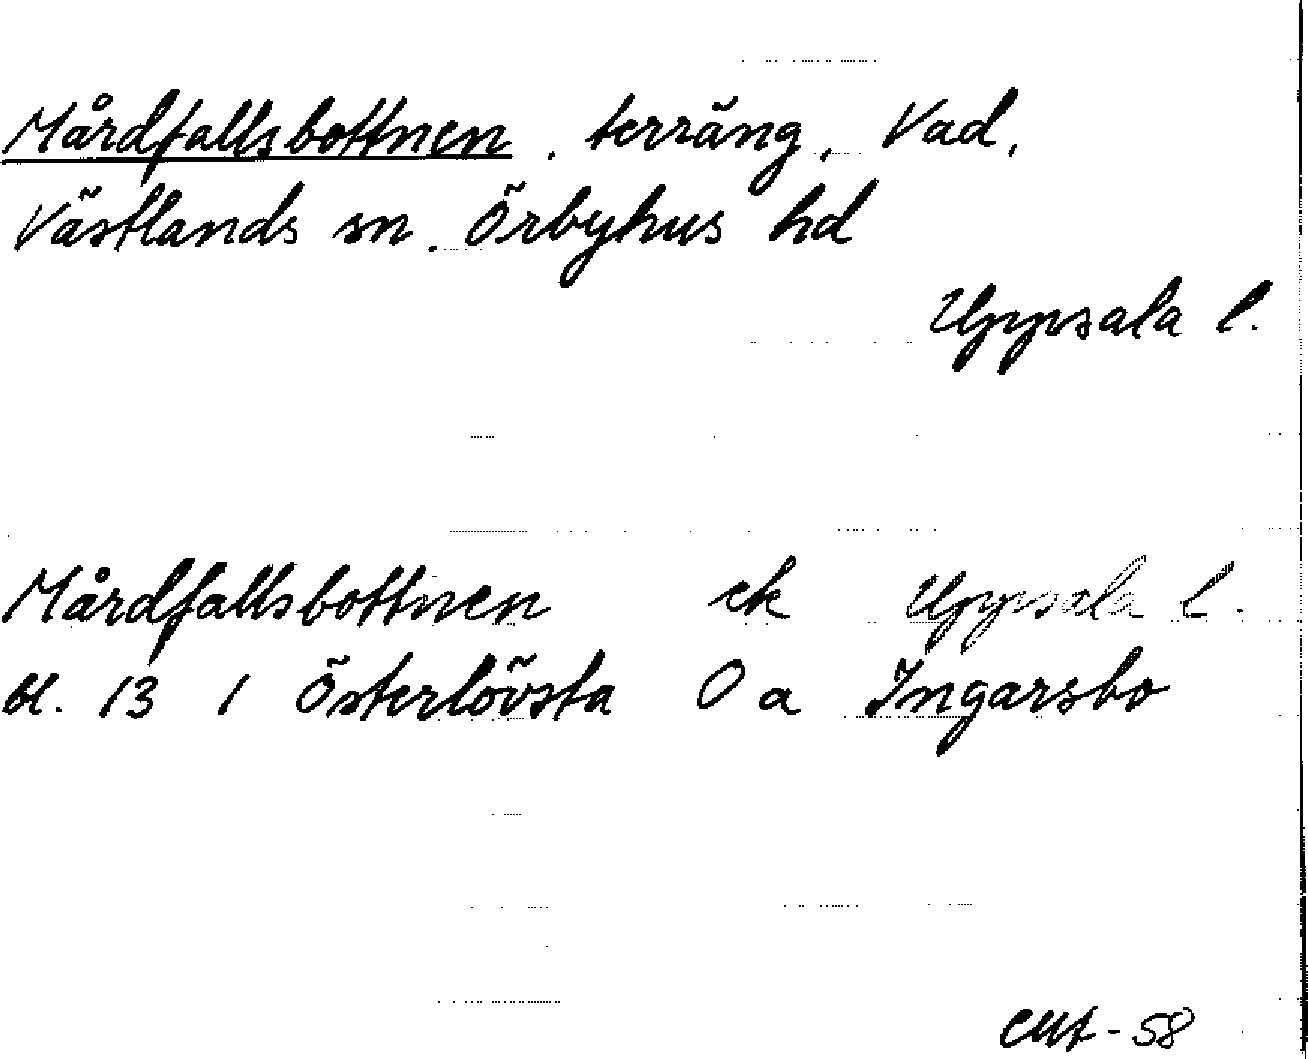 Mårdfallsbottnen, terräng, Vad,
Västlands sn. Örbyhus hd
Uppsala l.
Mårdfallsbottnen ek Uppsala l.
bl. 13 1 Österlövsta O a Ingarsbo
-58